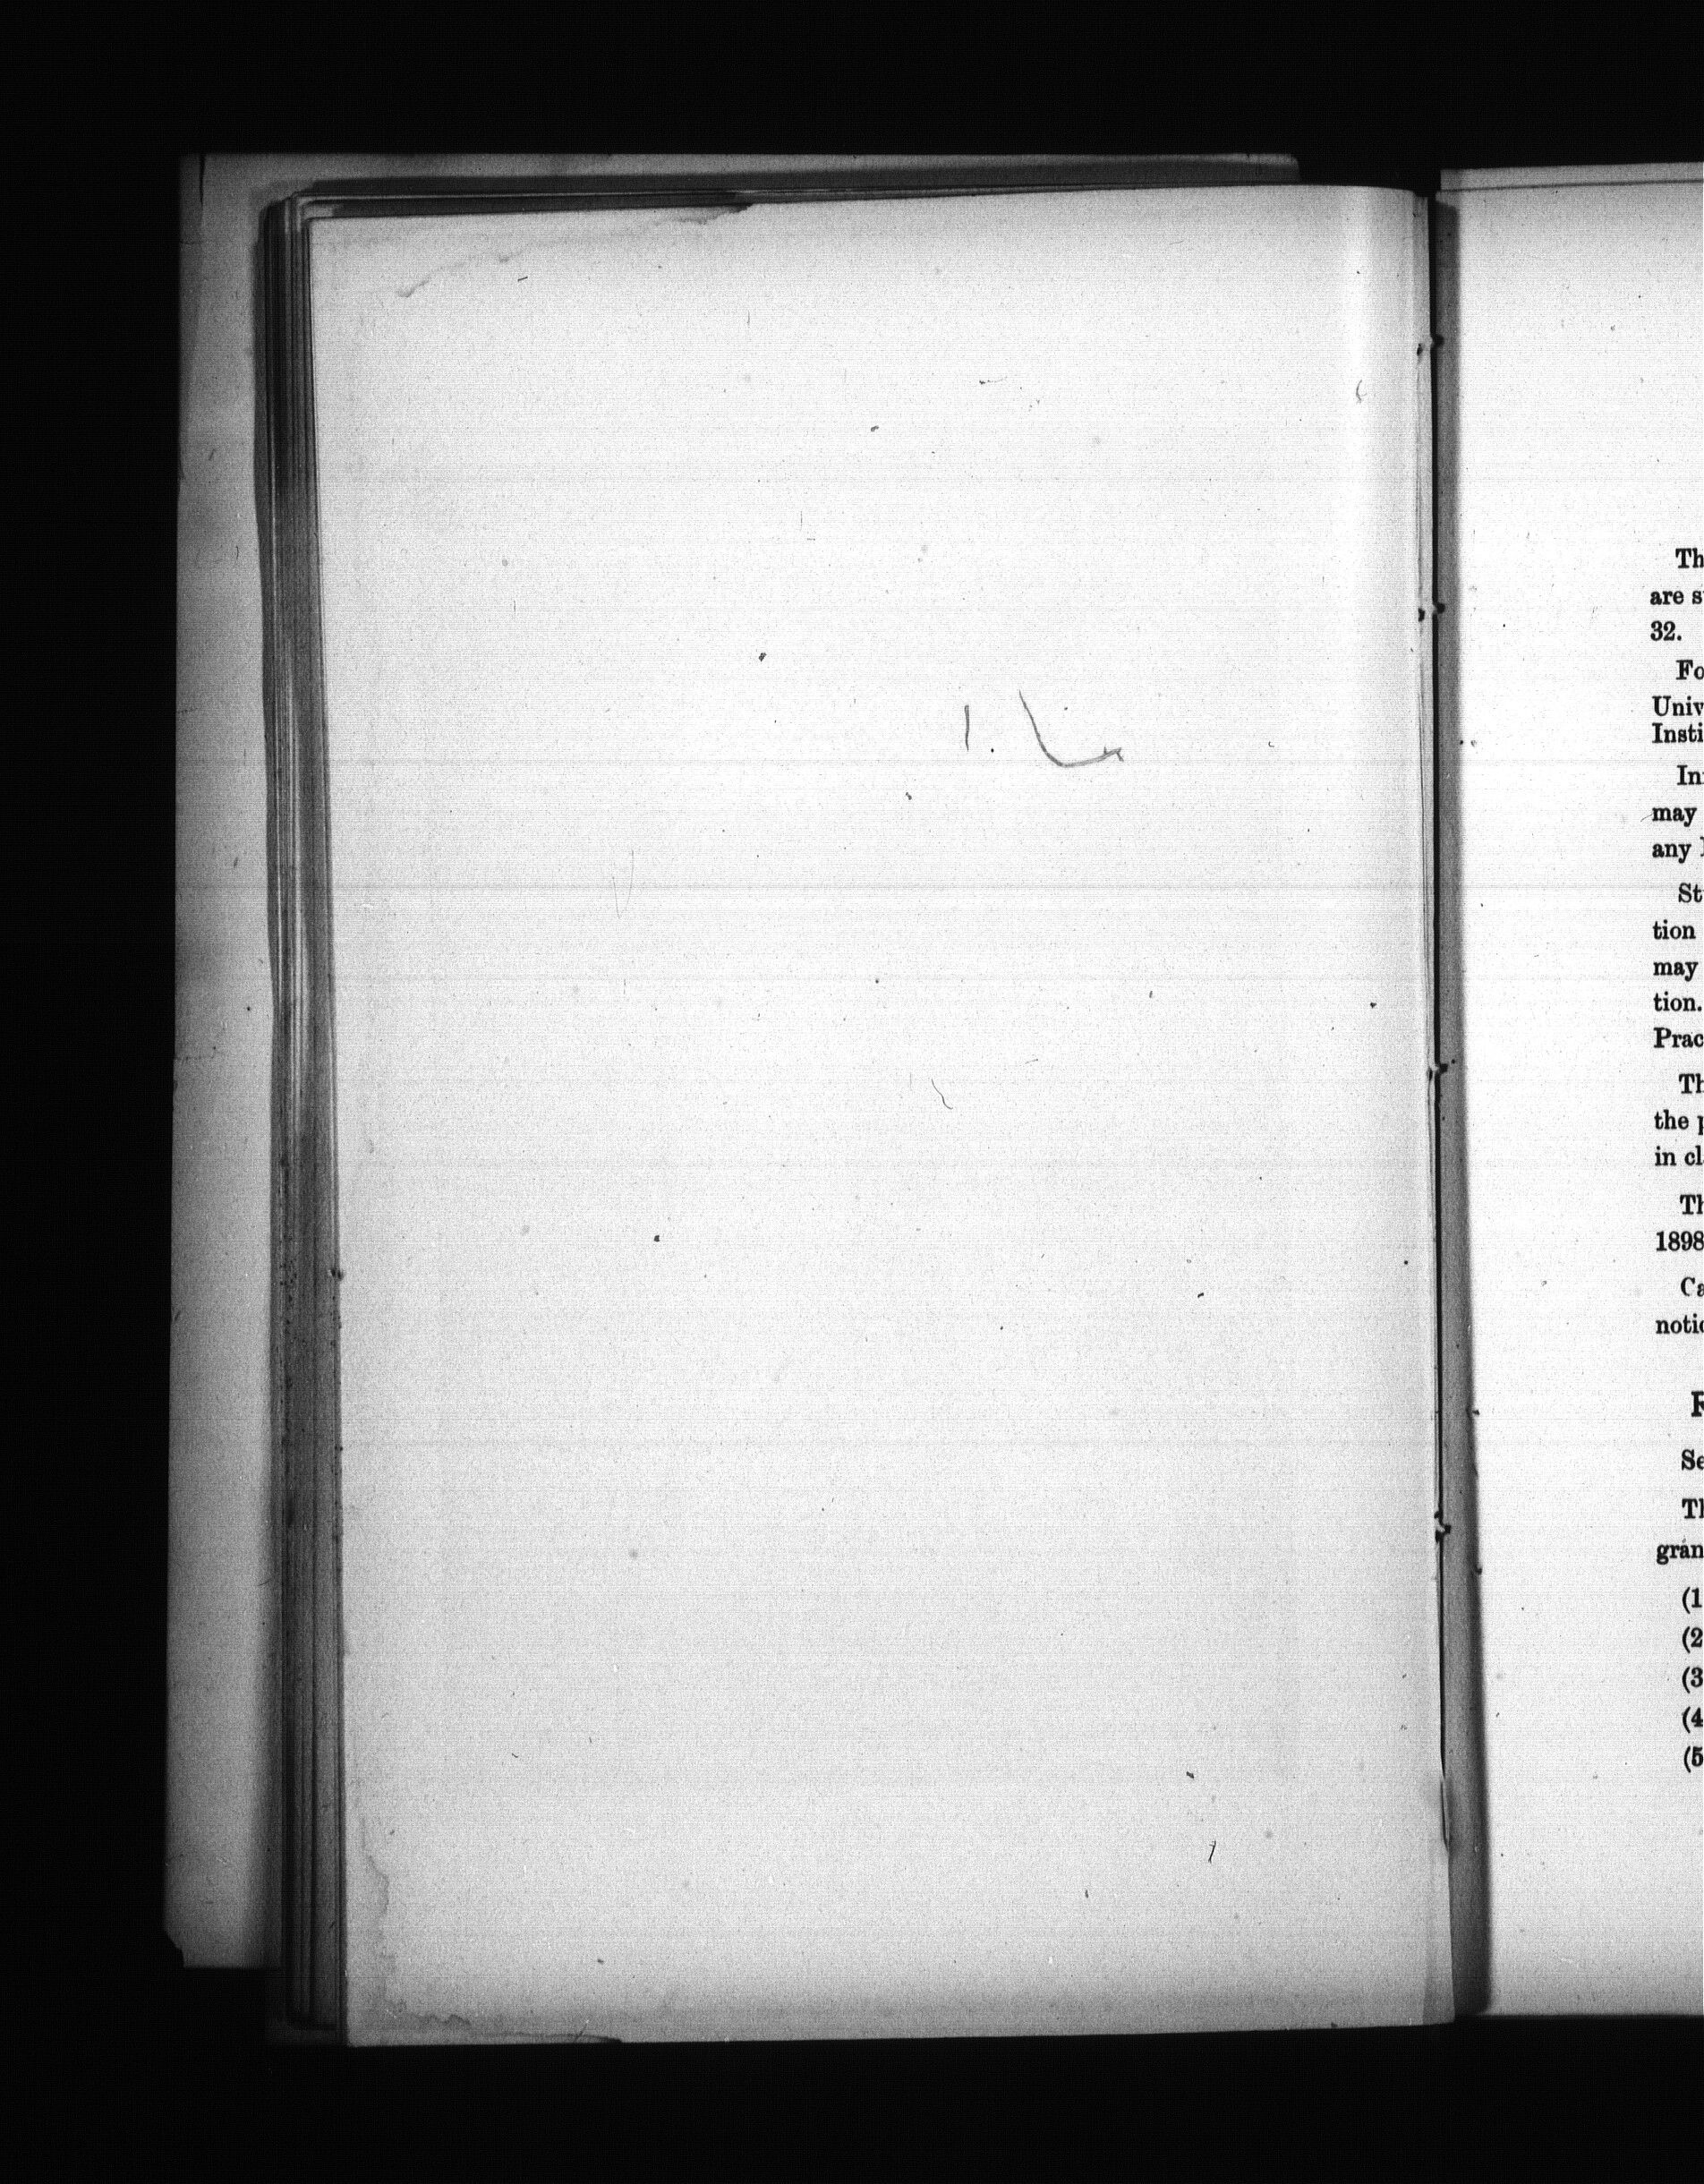 Th
are s
32.
Fo
Univ
Insti
In
may
any
St
tion
may
tion.
Prac
Th
the p
in cl
Th
1898
Ca
notic
Se
Th
gran
(1
(2
(3
(4
(5